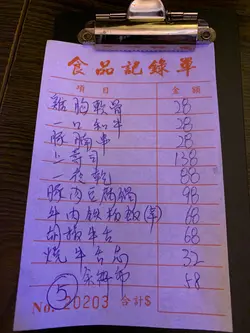 食品記錄單
項目 金額
雞胸軟骨 28
一口和牛 28
豚腩串 28
上壽司 138
一夜乾 88
豚肉豆腐鍋 98
牛肉鉄板飯(年) 68
胡椒牛舌 68
燒牛舌芯 32
58
No. 20203 合計$
5